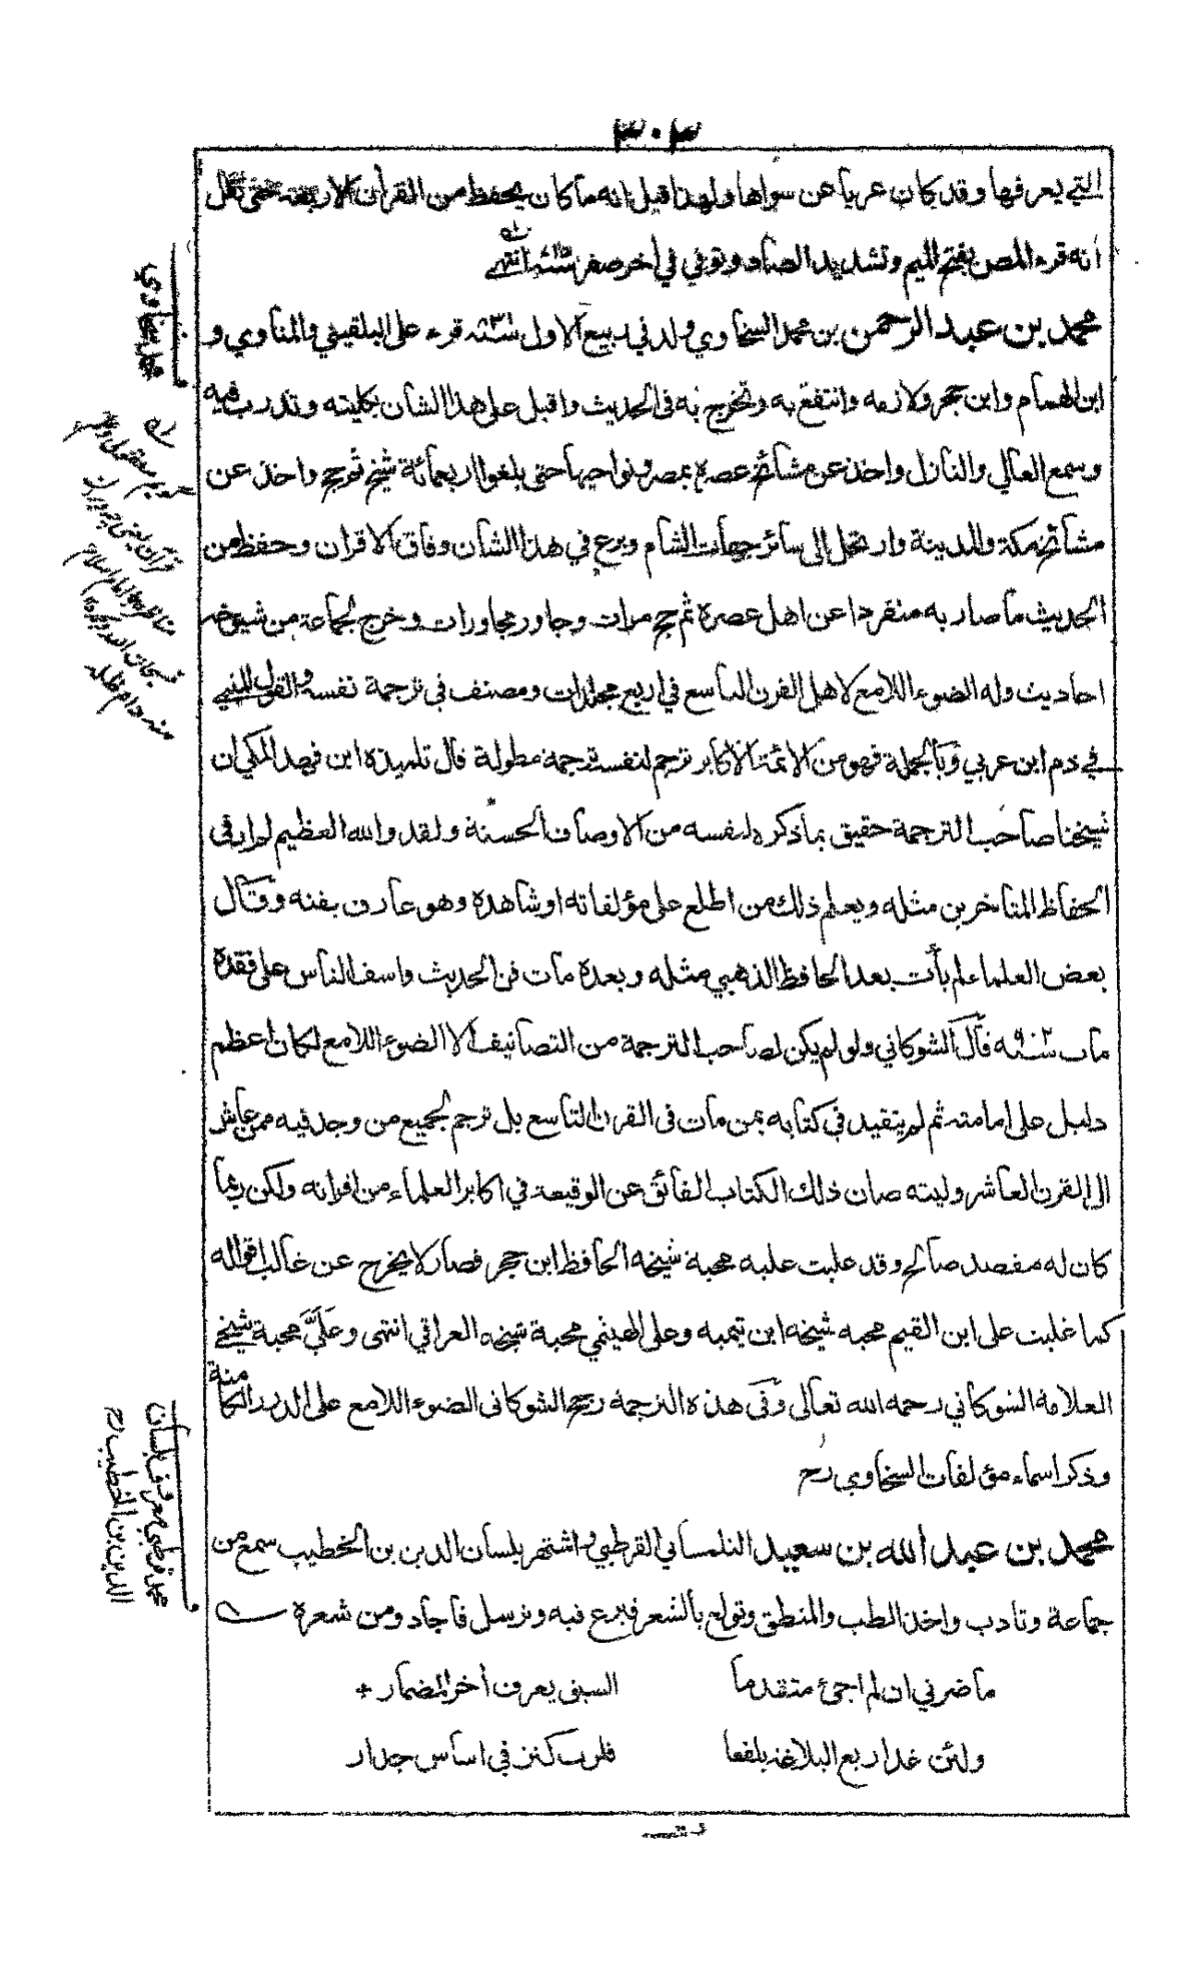 ٣٠٣
التي يعرفها وقد كان عريا عن سواها ولهذا قيل انه ما كان يحفظ من القرأن الاربعة حتى نقل
انه قرء المص بفتح الميم وتشديد الصاد وتوفي في أخر صفر انتهى
محمد بن عبد الرحمن بن محمد السخاوي ولد في ربيع الاول قرء على البلقيني والمناوي و
ابن الهمام وابن حجر ولازمه وانتفع به وتخرج به في الحديث واقبل على هذا الشان بكليته وتدرب فيه
وسمع العالي والنازل واخذ عن مشائخ عصره بمصر ونواحيها حتى بلغوا اربعمائة شيخ ثم حج واخذ عن
مشائخ مكة والمدينة وارتحل الى سائر جهات الشام وبرع في هذا الشان وفاق الاقران وحفظ من
الحديث ما صار به منفردا عن اهل عصره ثم حج مرات وجاور مجاورات وخرج لجماعة من شيوخه
احاديث وله الضوء اللامع لاهل القرن التاسع في اربع مجلدات ومصنف في ترجمة نفسه والقول المنبي
في ذم ابن عربي وبالجملة فهو من الائمة الاكابر ترجم لنفسه ترجمة مطولة قال تلميذه ابن فهد المكي ان
شيخنا صاحب الترجمة حقيق بما ذكره لنفسه من الاوصاف الحسنة ولقد والله العظيم لم ار في
الحفاظ المتاخرين مثله ويعلم ذلك من اطلع على مؤلفاته او شاهده وهو عارف بفنه وقال
بعض العلماء لم يأت بعد الحافظ الذهبي مثله وبعده مات فن الحديث واسف الناس على فقده
مات سنه ٩٠٢ قال الشوكاني ولو لم يكن لصاحب الترجمة من التصانيف الا الضوء اللامع لكان اعظم
دليل على امامته ثم لم يتقيد في كتابه بمن مات في القرن التاسع بل ترجم لجميع من وجد فيه ممن عاش
الى القرن العاشر وليته صان ذلك الكتاب الفائق عن الوقيعة في اكابر العلماء من اقرانه ولكن ربما
كان له مقصد صالح وقد غلبت عليه محبة شيخه الحافظ ابن حجر فصار لا يخرج عن غالب اقواله
كما غلبت على ابن القيم محبه شيخه ابن تيميه وعلى الهيثمي محبة شيخه العراقي انتهى وعَلَيَّ محبة شيخي
العلامه الشوكاني رحمه الله تعالى وفي هذه الترجمة رجح الشوكاني الضوء اللامع على الدرر الكامنة
وذكر اسماء مؤلفات السخاوي رح
محمد بن عبد الله بن سعيد التلمساني القرطبي واشتهر بلسان الدين بن الخطيب سمع من
جماعة وتادب واخذ الطب والمنطق وتولع بالشعر فبرع فيه وترسل فاجاد ومن شعره
ما ضرني ان لم اجئ متقدما السبق يعرف أخر المضمار +
ولئن غدا ربع البلاغة بلقعا فلرب كنز في اساس جدار
محمد سخاوي
منه دام ظله
محمد قرطبي معروف بلسان
الدين بن الخطيب رح